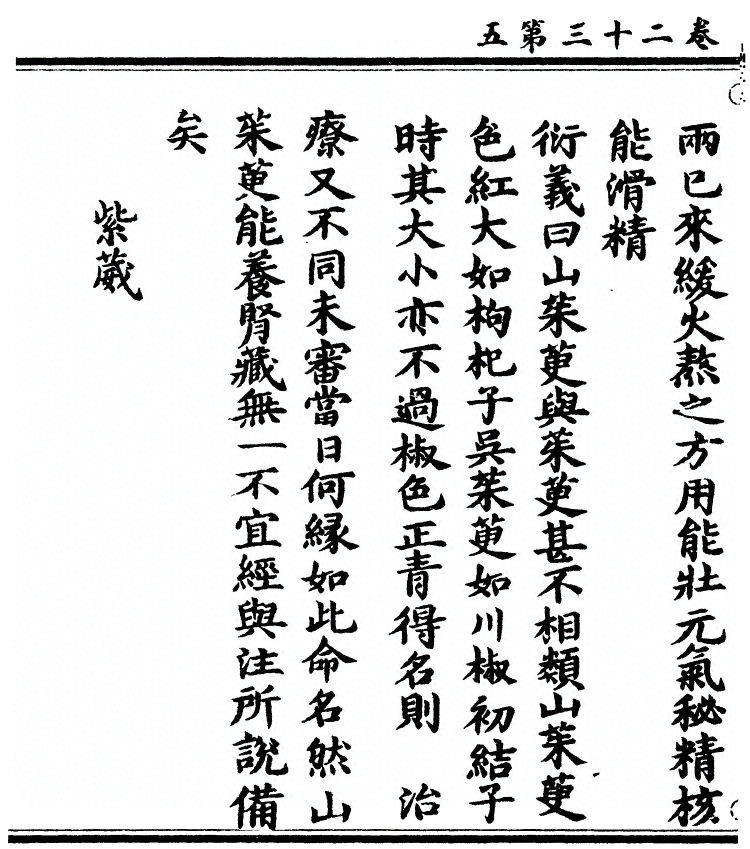 卷二十三第五
兩已來緩火熬之方用能壯元氣秘精核
能滑精
衍義曰山茱萸與茱萸甚不相類山茱萸
色紅大如枸杞子吳茱萸如川椒初結子
時其大小亦不過椒色正青得名則　治
療又不同未審當日何緣如此命名然山
茱萸能養腎藏無一不宜經與注所說備
矣
紫葳